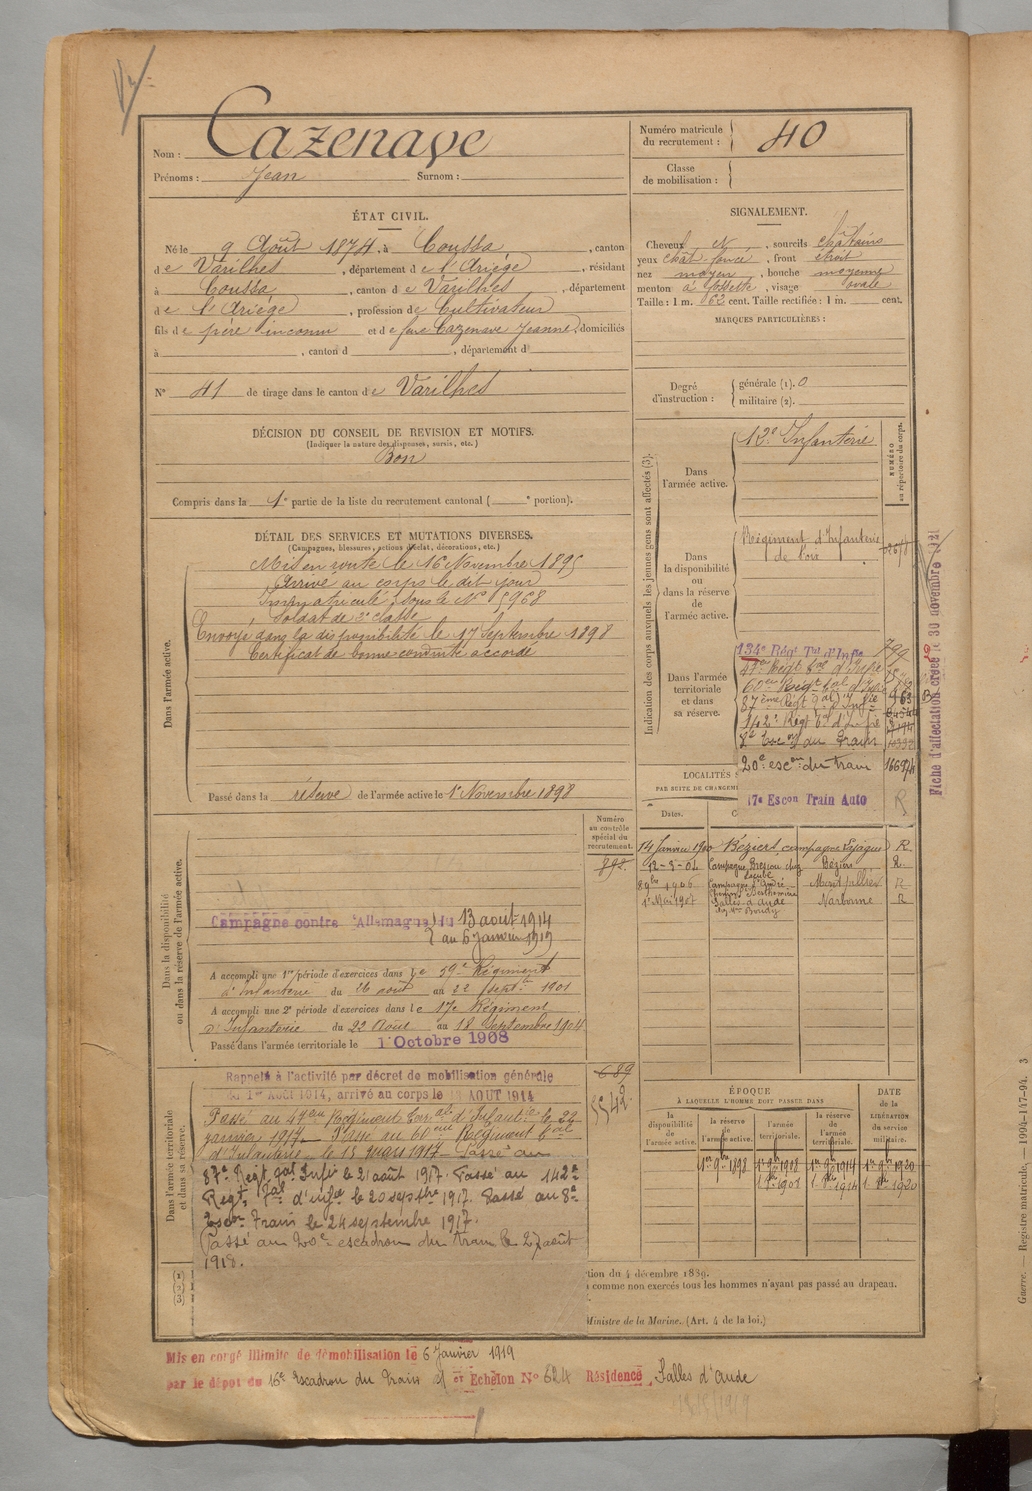 Nom : Cazenave
Prénoms : Jean Surnom :
Numéro matricule du recrutement : 40
Classe de mobilisation :
ÉTAT CIVIL.
Né le 9 Août 1874, à Coussa, canton
de Varilhes, département de l'Ariège, résidant
à Coussa, canton de Varilhes, département
de l'Ariège, profession de Cultivateur
fils de père inconnu et de feue Cazenave Jeanne, domiciliés
à , canton d , département d
N° 41 de tirage dans le canton de Varilhes
SIGNALEMENT.
Cheveux N, sourcils châtains
yeux chât. foncé, front étroit
nez moyen, bouche moyenne
menton à fossette, visage ovale
Taille : 1 m. 62 cent. Taille rectifiée : 1 m. cent.
MARQUES PARTICULIÈRES :
Degré d'instruction : générale (1). 0
militaire (2).
DÉCISION DU CONSEIL DE REVISION ET MOTIFS.
(Indiquer la nature des dispenses, sursis, etc.)
Bon
Compris dans la 1e partie de la liste du recrutement cantonal ( e portion).
DÉTAIL DES SERVICES ET MUTATIONS DIVERSES.
(Campagnes, blessures, actions d'éclat, décorations, etc.)
Dans l'armée active.
Mis en route le 16 Novembre 1895
Arrivé au corps le dit jour
Immatriculé sous le N° 5968
Soldat de 2e classe
Envoyé dans la disponibilité le 17 Septembre 1898
Certificat de bonne conduite accordé
Passé dans la réserve de l'armée active le 1er Novembre 1898
Indication des corps auxquels les jeunes gens sont affectés (3).
NUMÉRO au répertoire du corps.
Dans l'armée active.
12e Infanterie
Dans la disponibilité ou dans la réserve de l'armée active.
Régiment d'Infanterie
de Foix
Dans l'armée territoriale et dans sa réserve.
134e Régt Tal d'Infie
47e Régt Tal d'Infie
60e Régt Tal d'Infie
87ème Régt Tal d'Infie
142e Régt Tal d'Infie
8e Escon du Train
20e escon du train 16697
17e Escon Train Auto R
Fiche d'affectation créée le 30 novembre 1921
LOCALITÉS
PAR SUITE DE CHANGEM
Dates.
14 Janvier 1900 Béziers campagne R
12-3-04 Campagne Béziers R
8bre 1906 Campagne St André Montpellier R
1er Mai 1907 Salles d'Aude Narbonne R
Numéro au contrôle spécial du recrutement.
892
Dans la disponibilité ou dans la réserve de l'armée active.
Campagne contre l'Allemagne du 13 août 1914
au 6 janvier 1919
A accompli une 1re période d'exercices dans le 59e Régiment
d'Infanterie du 26 août au 22 Septbre 1901
A accompli une 2e période d'exercices dans le 17e Régiment
d'Infanterie du 22 Août au 18 Septembre 1904
Passé dans l'armée territoriale le 1er Octobre 1908
Dans l'armée territoriale et dans sa réserve.
689
Rappelé à l'activité par décret de mobilisation générale
du 1er Août 1914, arrivé au corps le 13 AOUT 1914
Passé au 47e Régiment Torial d'Infanterie le 22
janvier 1917. Passé au 60e Régiment Tal
d'Infanterie le 15 mars 1917. Passé au
87e Régt Tal Infie le 21 août 1917. Passé au 142e
Regt Tal d'infie le 20 septbre 1917. Passé au 8e
Escon Train le 24 septembre 1917.
Passé au 20e escadron du train le 27 août
1918.
ÉPOQUE
À LAQUELLE L'HOMME DOIT PASSER DANS
la disponibilité de l'armée active.
la réserve de l'armée active.
l'armée territoriale.
la réserve de l'armée territoriale.
DATE de la LIBÉRATION du service militaire.
1er 9bre 1898 1er 9bre 1908 1er 9bre 1914 1er 9bre 1920
1er 8bre 1901 1er 8bre 1914 1er 8bre 1920
(1)
(2)
(3)
tion du 4 décembre 1889.
comme non exercés tous les hommes n'ayant pas passé au drapeau.
Ministre de la Marine. (Art. 4 de la loi.)
Mis en congé illimité de démobilisation le 6 Janvier 1919
par le dépôt du 16e Escadron du Train et Echelon N° 624 Résidence Salles d'Aude
Guerre. — Registre matricule. — 1994-147-94. 3